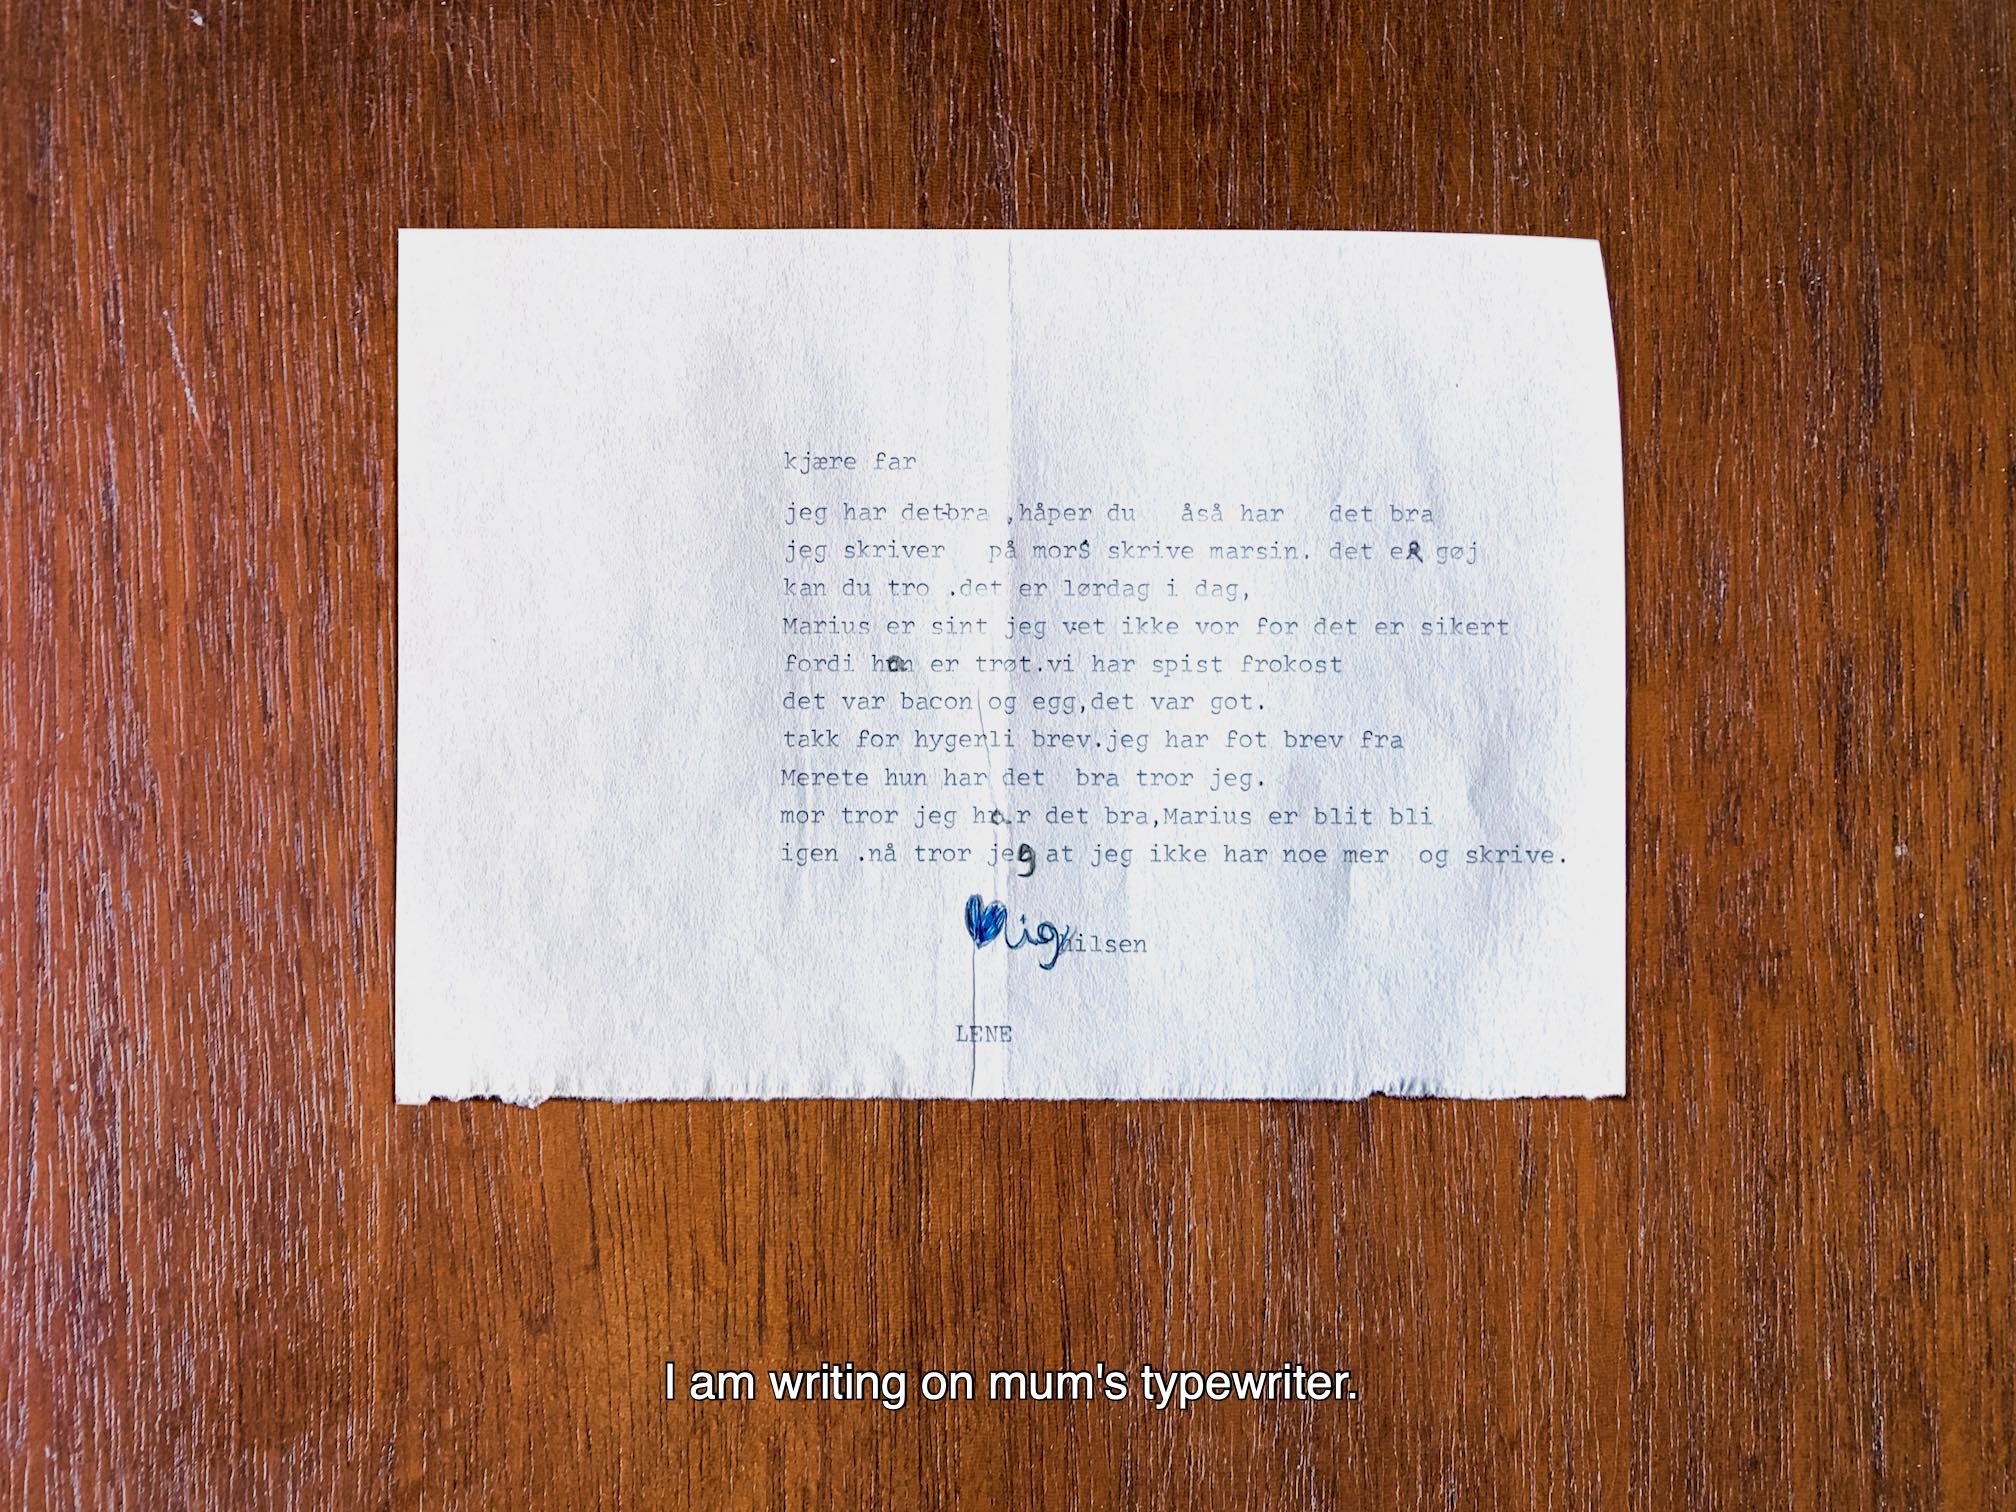 kjære far
jeg har det bra ,håper du åså har det bra
jeg skriver på morS skrive marsin. det eR gøj
kan du tro .det er lørdag i dag,
Marius er sint jeg vet ikke vor for det er sikert
fordi han er trøt.vi har spist frokost
det var bacon og egg,det var got.
takk for hygerli brev.jeg har fot brev fra
Merete hun har det bra tror jeg.
mor tror jeg har det bra,Marius er blit bli
igen .nå tror jeg at jeg ikke har noe mer og skrive.
lig hilsen
LENE
I am writing on mum's typewriter.